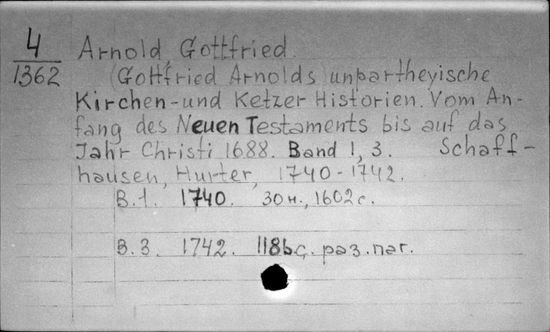 4
1362
Arnold, Gottfried.
(Gottfried Arnolds) unpartheyische
Kirchen-und Ketzer Historien. Vom An-
fang des Neuen Testaments bis auf das
Jahr Christi 1688. Band 1, 3. Schaff-
hausen, Hurter, 1740-1742.
B.1. 1740. 30 н., 1602 с.
B.3. 1742. 1186 с. раз. паг.